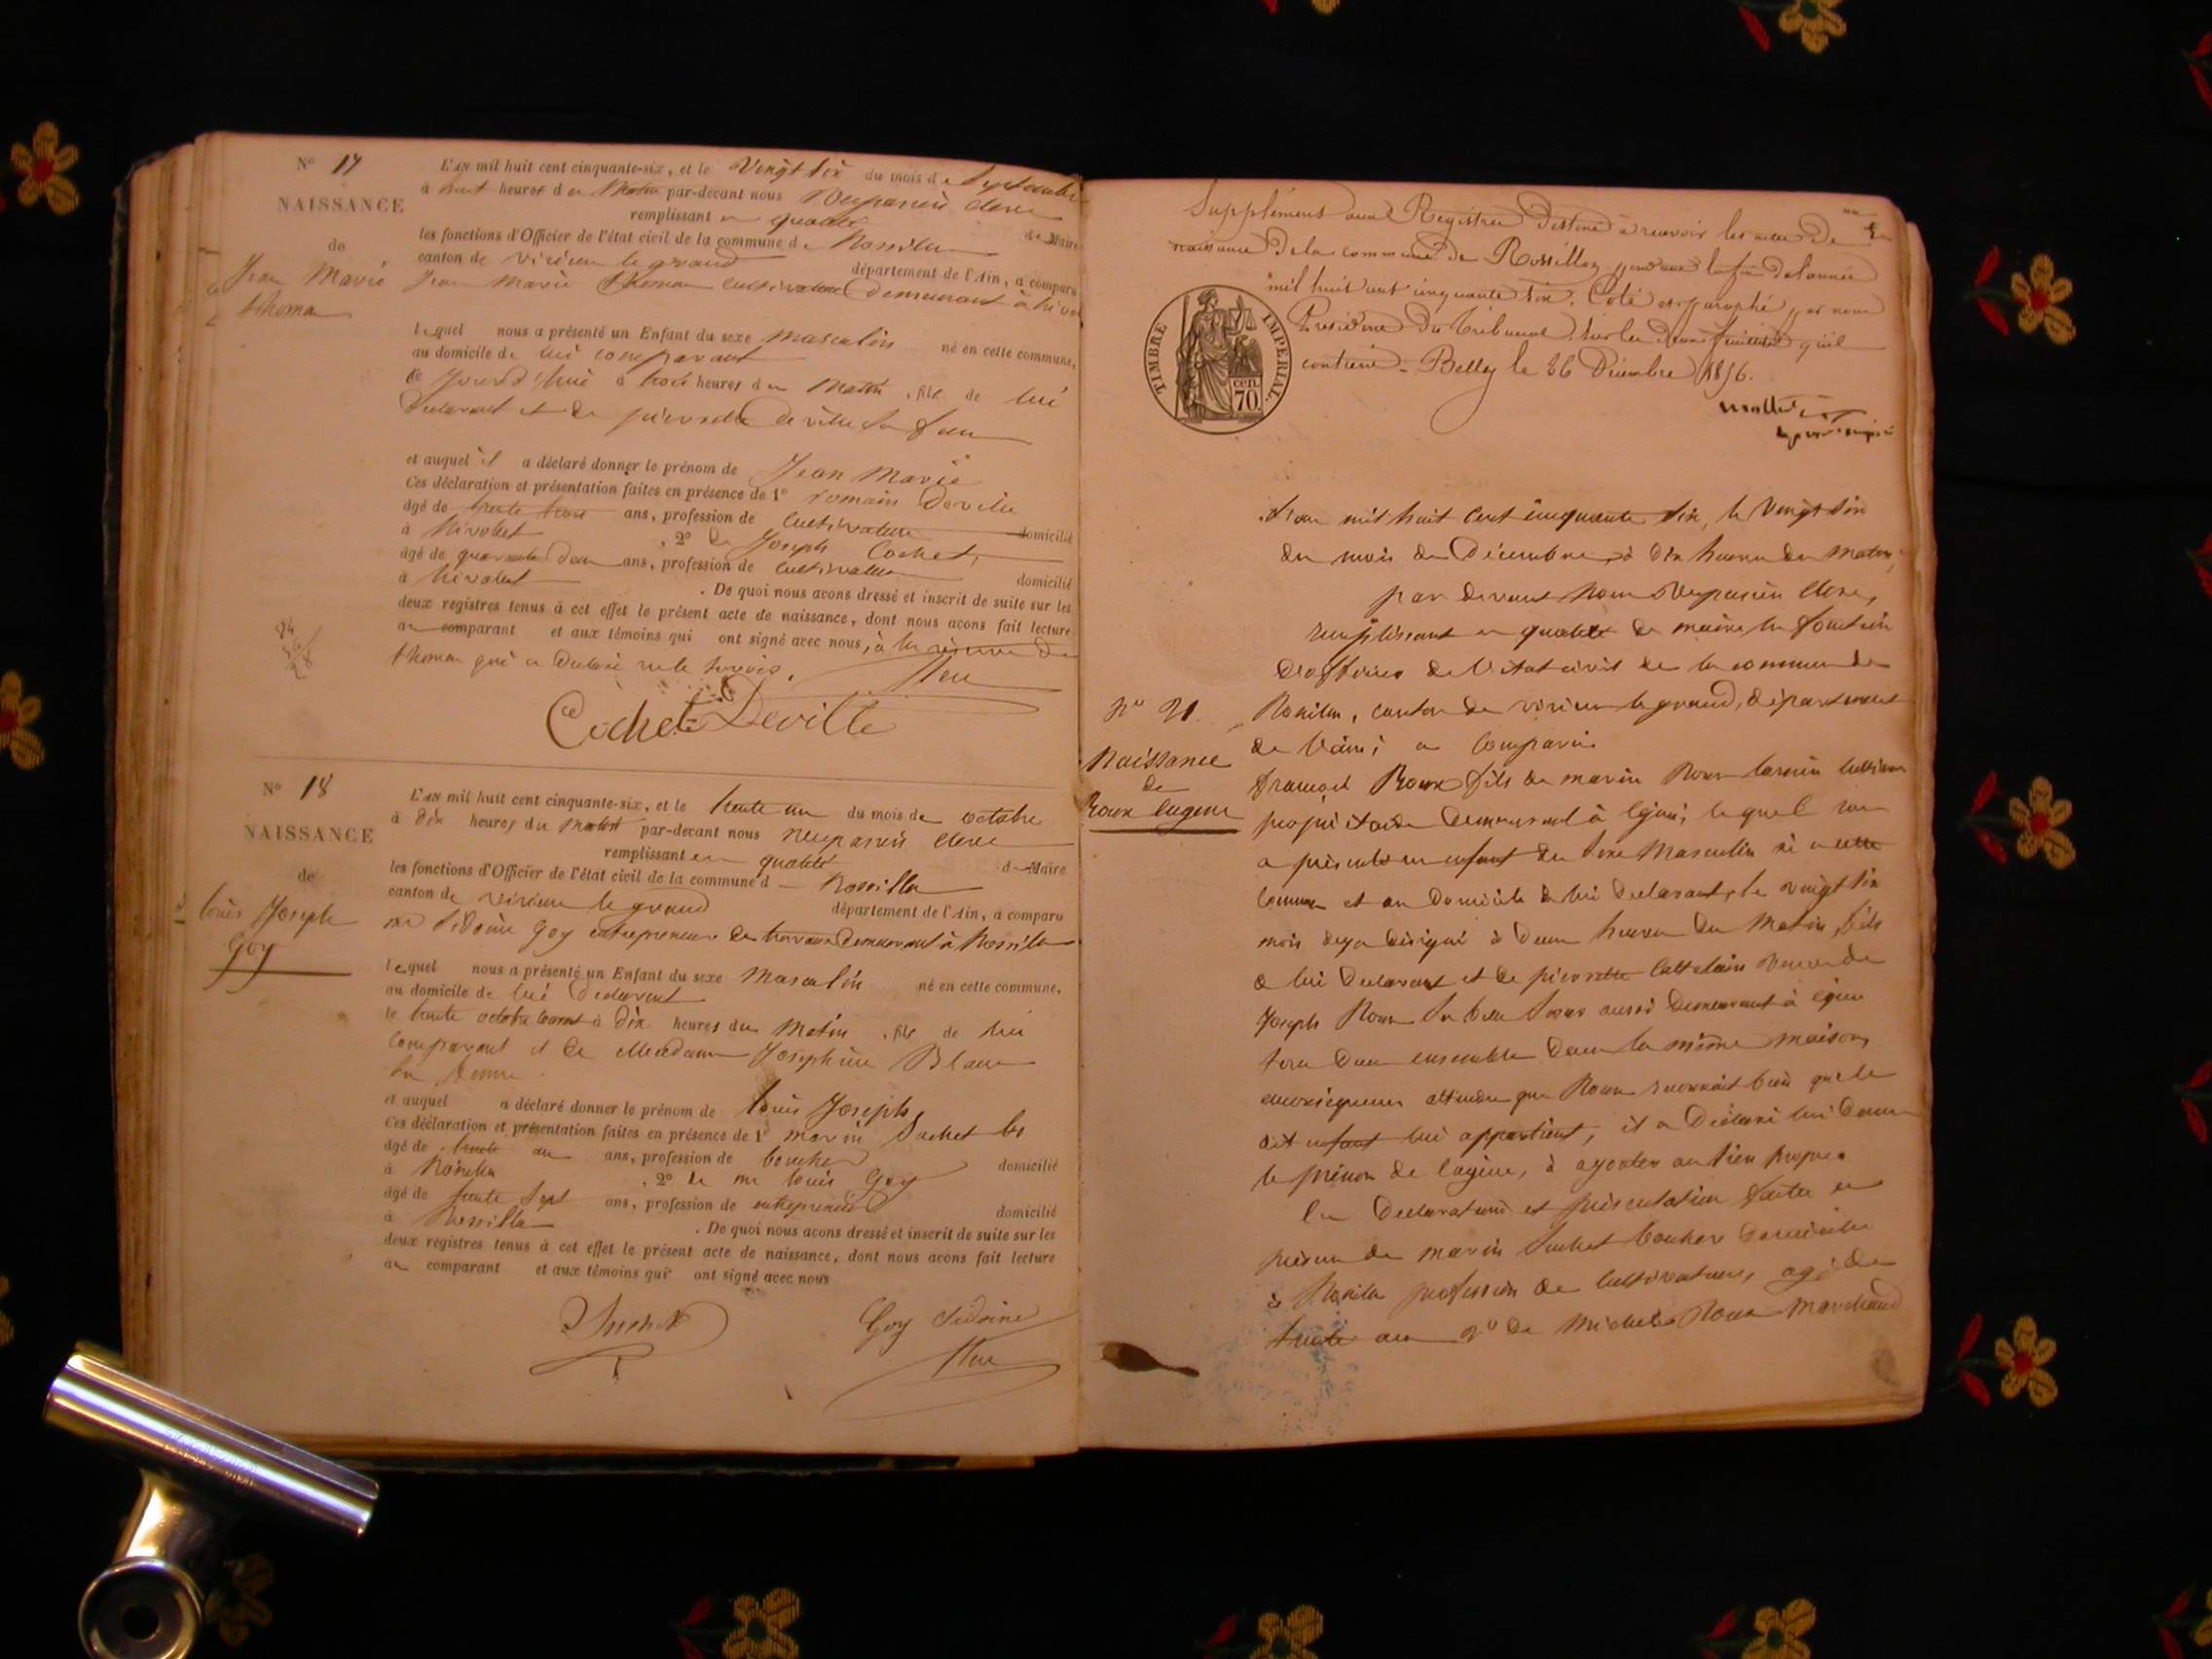 N° 17
NAISSANCE
de
Jean Marie
thoma
L'AN mil huit cent cinquante-six, et le Vingt six du mois de Septembre
à huit heures du Matin par-devant nous Vespasien Clerc
remplissant en qualité de Maire
les fonctions d'Officier de l'état civil de la commune de Rossillon
canton de virieu le grand département de l'Ain, a comparu
Jean Marie thoma cultivateur demeurant à
lequel nous a présenté un Enfant du sexe masculin né en cette commune,
au domicile de lui comparant
ce Jourd'hui à trois heures du Matin, fils de lui
Declarant et de pierrette deville sa femme
et auquel il a déclaré donner le prénom de Jean Marie
Ces déclaration et présentation faites en présence de 1° romain Deville
âgé de trente trois ans, profession de Cultivateur domicilié
à , 2° de Joseph Cochet,
âgé de quarante deux ans, profession de cultivateur domicilié
à . De quoi nous avons dressé et inscrit de suite sur les
deux registres tenus à cet effet le présent acte de naissance, dont nous avons fait lecture
au comparant et aux témoins qui ont signé avec nous, à la réserve de
thoma qui a declaré ne le savoir.
Cochet Deville
N° 18
NAISSANCE
de
louis Joseph
Goy
L'AN mil huit cent cinquante-six, et le trente un du mois de octobre
à dix heures du matin par-devant nous Vespasien Clerc
remplissant en qualité de Maire
les fonctions d'Officier de l'état civil de la commune d Rossillon
canton de virieu le grand département de l'Ain, a comparu
mr Sidoine Goy entrepreneur de travaux demeurant à Rossillon
lequel nous a présenté un Enfant du sexe Masculin né en cette commune,
au domicile de lui Declarant
le trente octobre courant à Dix heures du Matin, fils de lui
Comparant et de Josephine Blanc
sa femme
et auquel a déclaré donner le prénom de louis Joseph
Ces déclaration et présentation faites en présence de 1° marin Suchet
âgé de trente un ans, profession de boucher domicilié
à Rossillon , 2° de mr louis Goy
âgé de trente Sept ans, profession de entrepreneur domicilié
à Rossillon . De quoi nous avons dressé et inscrit de suite sur les
deux registres tenus à cet effet le présent acte de naissance, dont nous avons fait lecture
au comparant et aux témoins qui ont signé avec nous
Suchet Goy Sidoine
Supplément aux Registres Destiné à recevoir les actes De
naissance De la commune de Rossillon pendant la fin de l'année
mil huit cent cinquante six. Coté et paraphé par nous
Président du tribunal, sur les deux feuillets qu'il
contient. Belley le 26 Décembre 1856.
TIMBRE IMPERIAL.
cen. 70.
L'an mil huit Cent cinquante six, le Vingt six
du mois de Décembre à dix heures du Matin,
par devant Nous Vespasien Clerc,
remplissant en qualité de maire les fonctions
d'officier de l'état civil de la commune de
N° 21
Naissance
de
Roux Eugène
Rossillon, canton de virieu le grand, département
de l'ain; a Comparu
françois Roux fils de marin Roux
propriétaire demeurant à ; lequel nous
a présenté un enfant du Sexe Masculin né en cette
Commune et au Domicile de lui Declarant, le vingt six
mois deja désigné à deux heures du Matin, fils
de lui Declarant et de pierrette veuve de
Joseph Roux sa belle soeur aussi demeurant à
tous deux ensemble dans la même maison,
attendu que Roux reconnait bien que le
dit enfant lui appartient, il a Déclaré lui donner
le prénom de Eugène, à ajouter au sien propre.
Les Declaration et présentation faites en
présence de marin Suchet boucher domicilié
à Rossillon profession de Cultivateur, agé de
trente ans 2° de Michel Roux Marchand